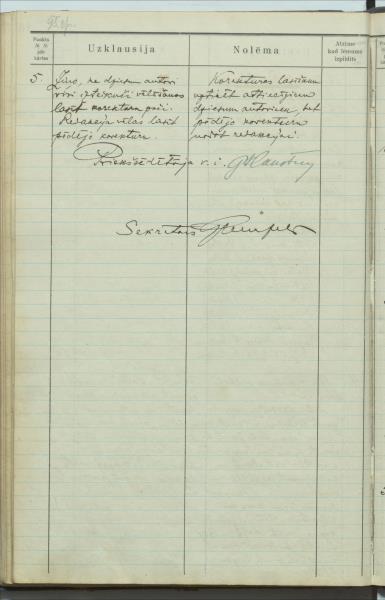 Punkts
№ №
pēc
kārtas
Uzklausija
Nolēma
Atzīme
kad lēmums
izpildīts
5.
Ziņo, ka dziesmu autori
izteikuši vēlēšanos
lasīt korekturu paši.
Redakcija vēlas lasīt
pēdējo korekturu.
Korekturas lasīšanu
uzticēt attiecīgiem
dziesmu autoriem, bet
pēdējo korekturu
redakcijai.
Priekšsēdētāja v. i.
Sekretars